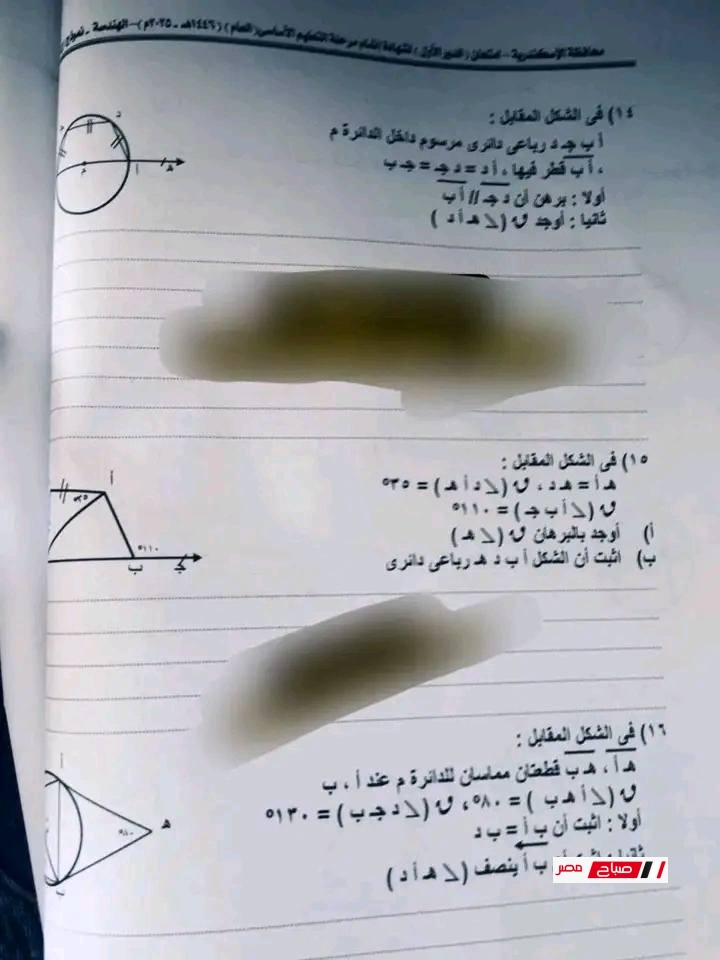 محافظة الإسكندرية - امتحان ( الدور الأول ) لشهادة إتمام مرحلة التعليم الأساسي ( العام ) ( ١٤٤٦هـ - ٢٠٢٥م ) - الهندسة - نموذج
١٤) فى الشكل المقابل :
أ ب جـ د رباعى دائرى مرسوم داخل الدائرة م
، أ ب قطر فيها ، أ د = د جـ = جـ ب
أولا : برهن أن د جـ // أ ب
ثانيا : أوجد ق ( ∠ هـ أ د )
د
م
أ
هـ
١٥) فى الشكل المقابل :
هـ أ = هـ د ، ق ( ∠ د أ هـ ) = ٣٥°
ق ( ∠ أ ب جـ ) = ١١٠°
أ) أوجد بالبرهان ق ( ∠ هـ )
ب) اثبت أن الشكل أ ب د هـ رباعى دائرى
أ
٣٥°
١١٠°
ب
جـ
١٦) فى الشكل المقابل :
هـ أ ، هـ ب قطعتان مماسان للدائرة م عند أ ، ب
ق ( ∠ أ هـ ب ) = ٨٠° ، ق ( ∠ د جـ ب ) = ١٣٠°
أولا : اثبت أن ب أ = ب د
ب أ ينصف ( ∠ هـ أ د )
أ
٨٠°
هـ
ب
صباح مصر